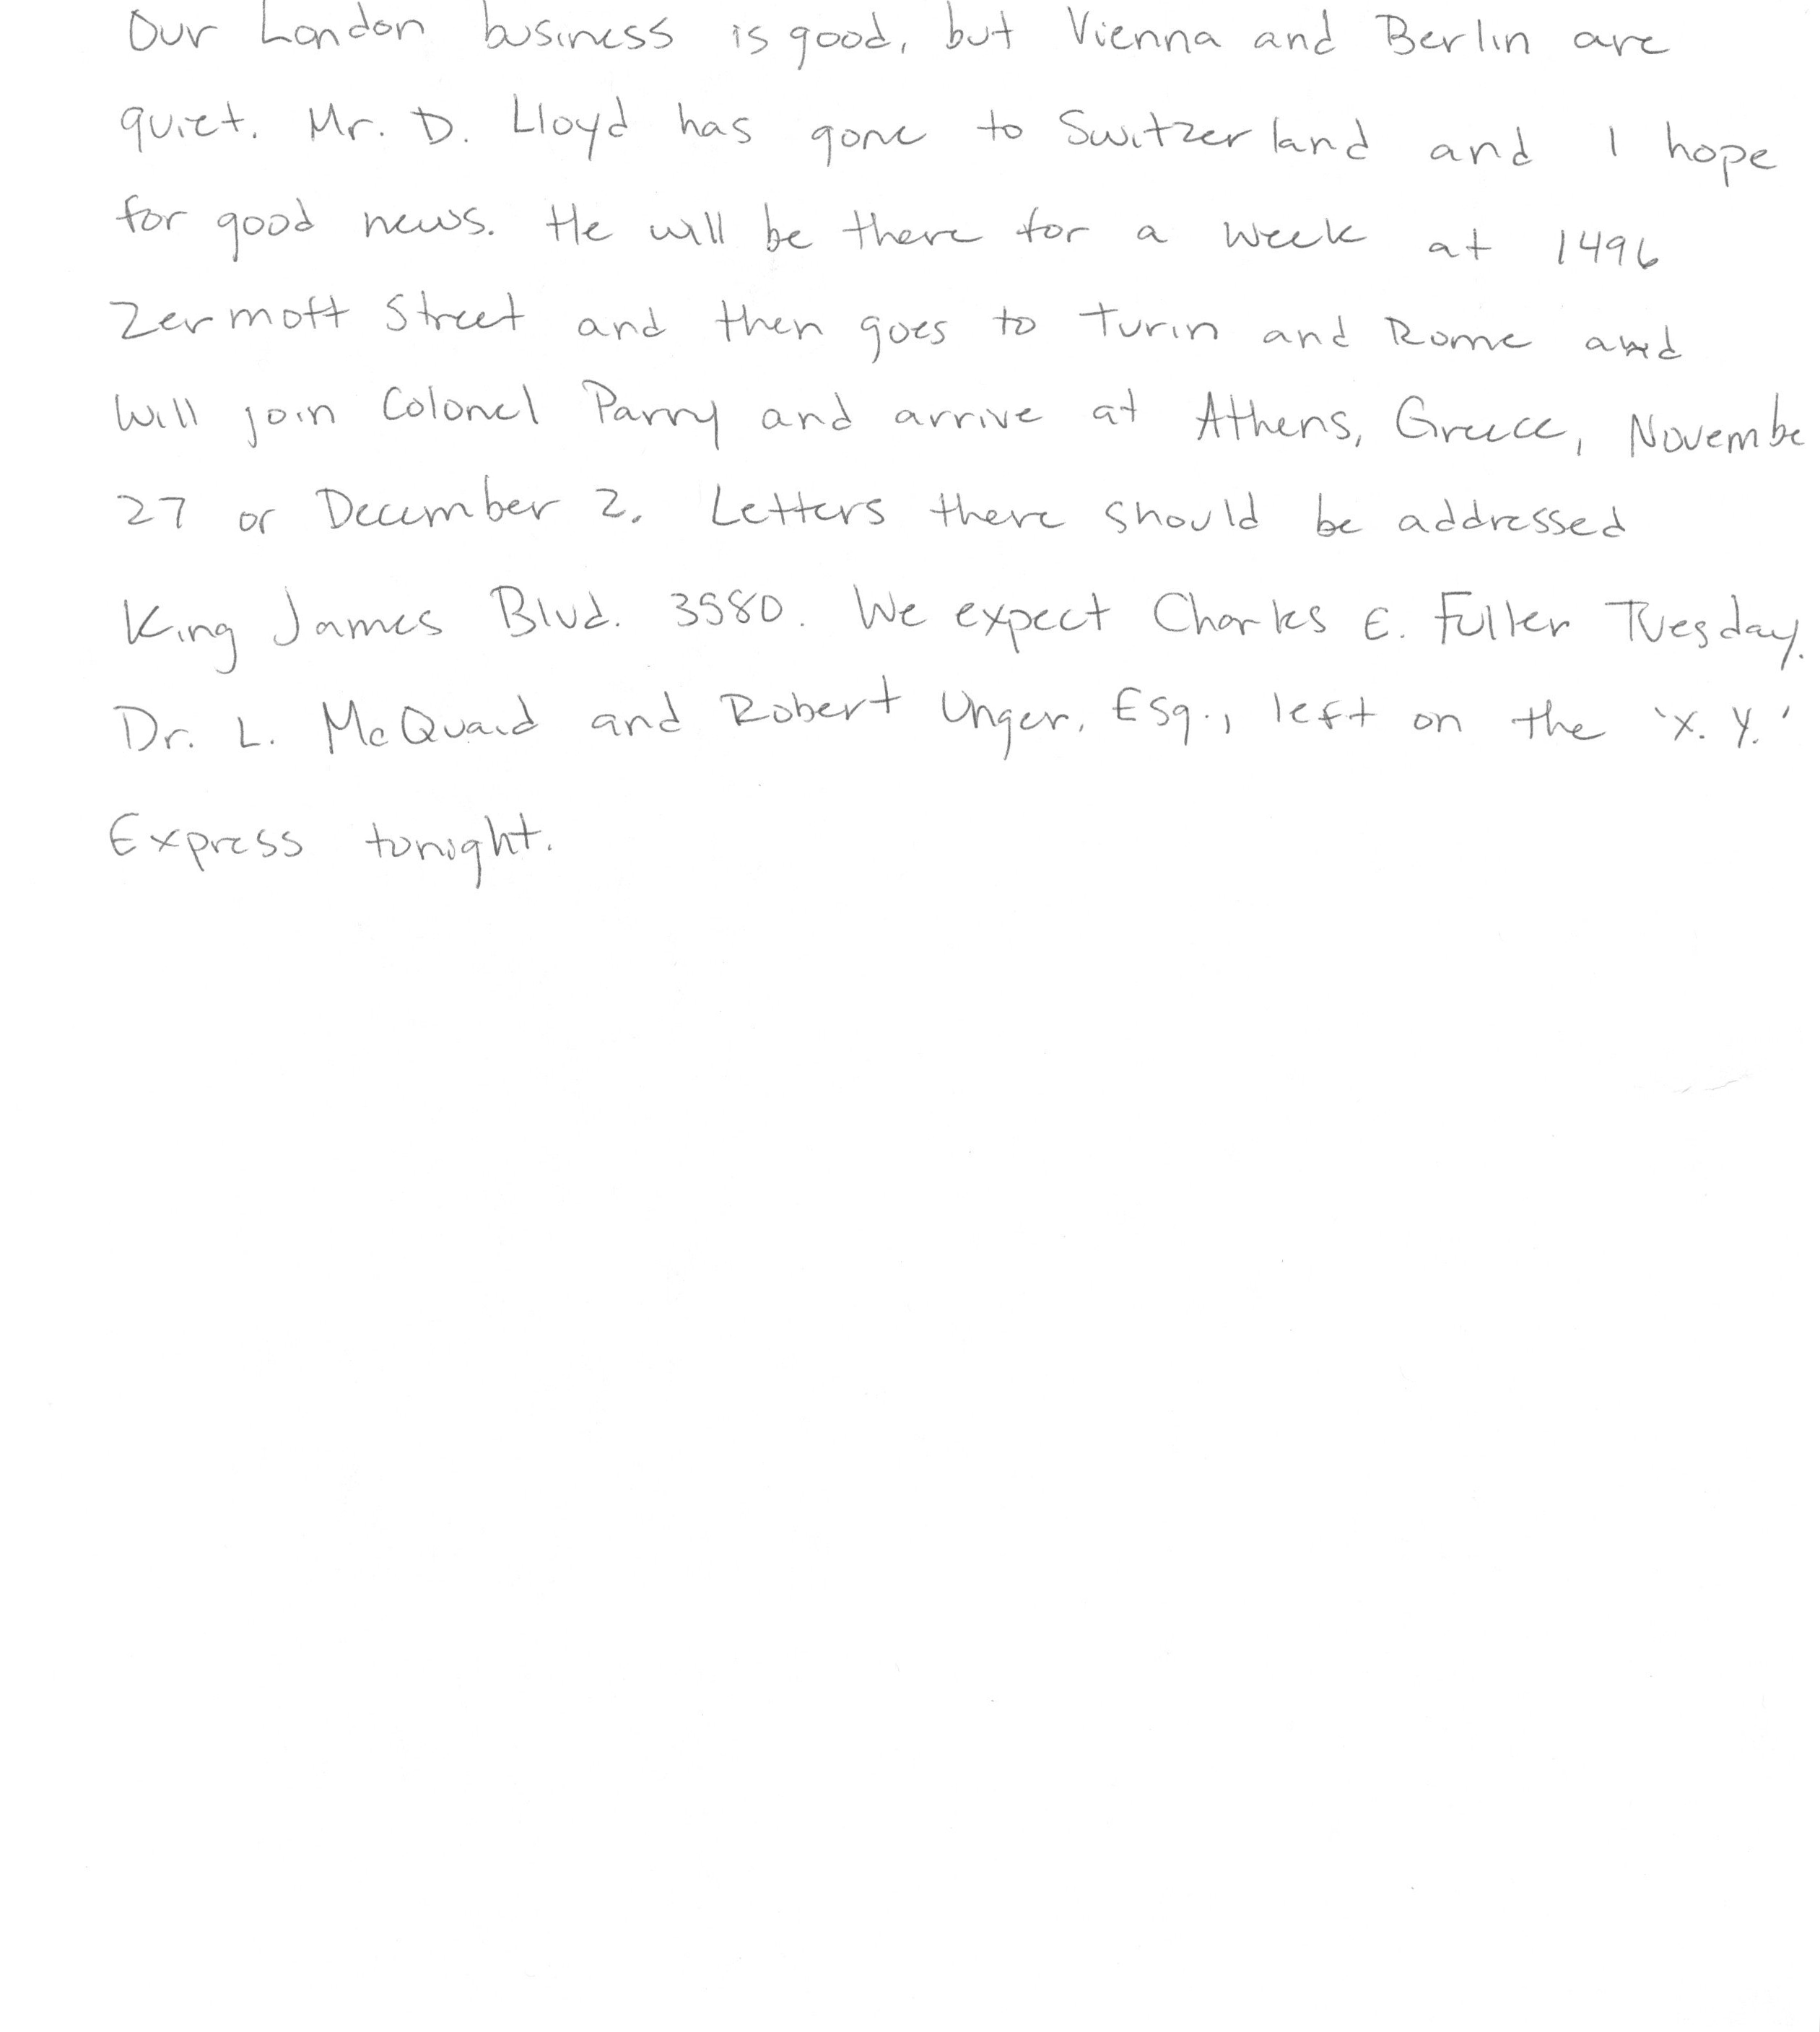 Our London business is good, but Vienna and Berlin are
quiet. Mr. D. Lloyd has gone to Switzerland and I hope
for good news. He will be there for a week at 1496
Zermott Street and then goes to Turin and Rome and
will join Colonel Parry and arrive at Athens, Greece, Novembe
27 or December 2. Letters there should be addressed
King James Blvd. 3580. We expect Charles E. Fuller Tuesday.
Dr. L. McQuaid and Robert Unger, Esq., left on the 'X. Y.'
Express tonight.